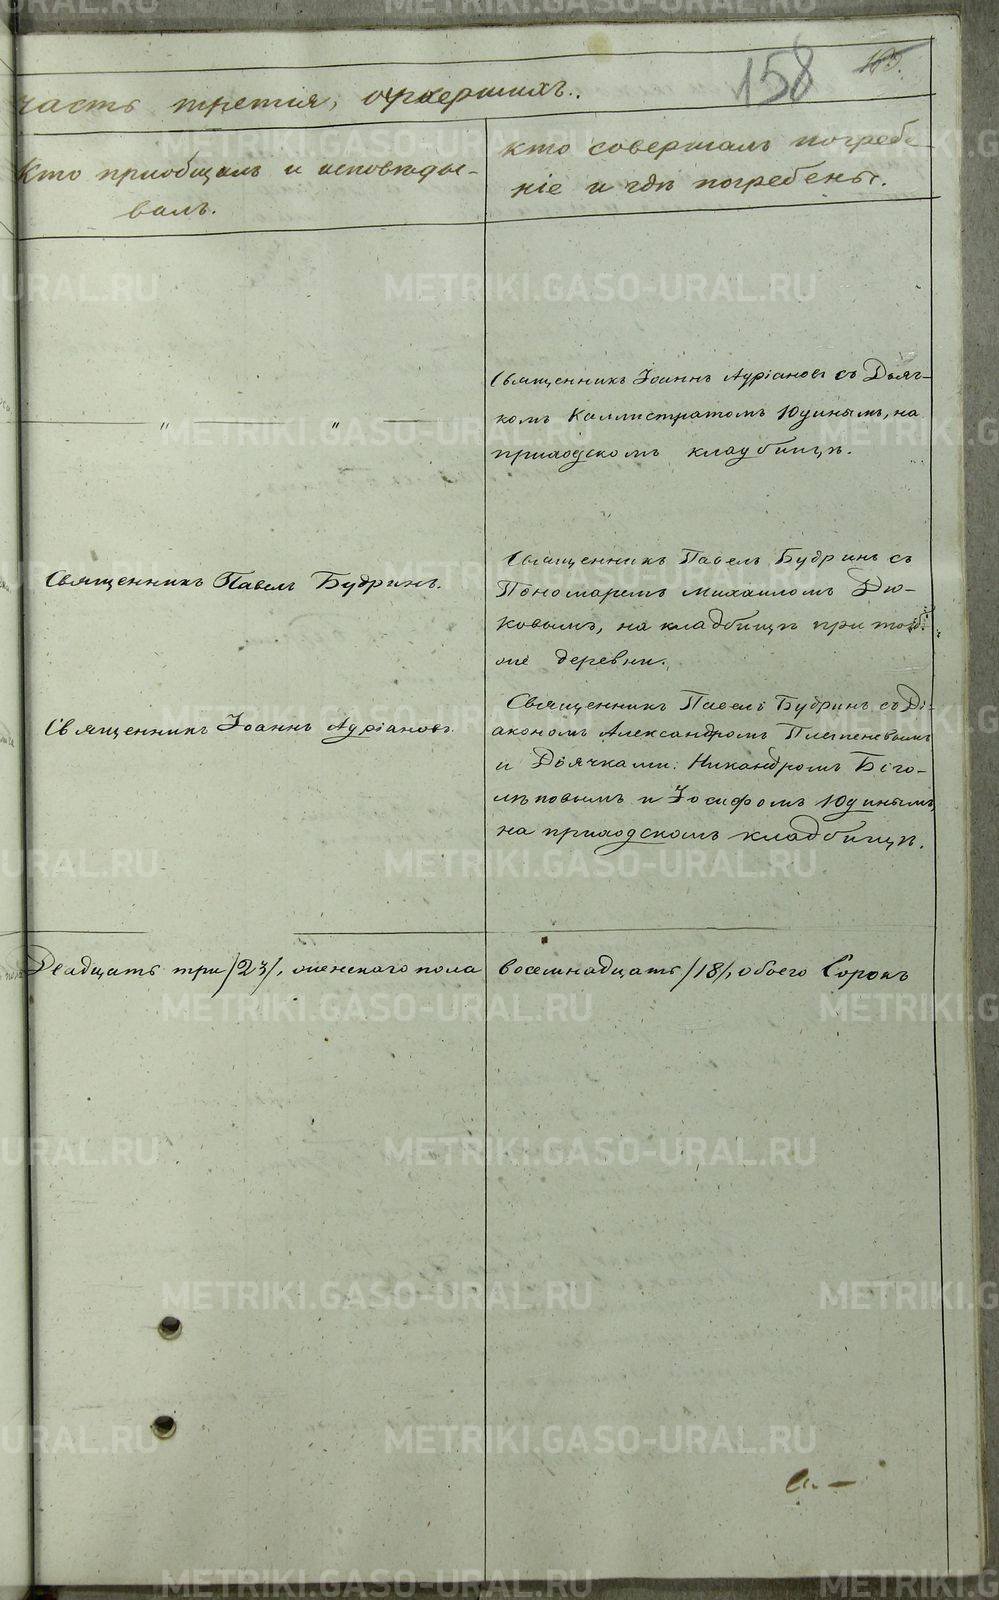 158 165.
часть третія, оумершихъ.
Кто пріобщалъ и исповѣды-
валъ.
кто совершалъ погребе-
ніе и гдѣ погребены.
" "
Священникъ Іоаннъ Адріановъ съ Дьяч-
комъ Каллистратомъ Юдинымъ, на
приходскомъ кладбищѣ.
Священникъ Павелъ Будринъ.
Священникъ Павелъ Будринъ съ
Пономаремъ Михаиломъ Дю-
ковымъ, на кладбищѣ при той
же деревни.
Священникъ Іоаннъ Адріановъ.
Священникъ Павелъ Будринъ съ Ді-
акономъ Александромъ Плетеневымъ
и Дьячками: Никандромъ Бого-
лѣповымъ и Іосифомъ Юдинымъ,
на приходскомъ кладбищѣ.
Двадцать три /23/, женскаго пола
восемнадцать /18/, обоего Сорокъ
METRIKI.GASO-URAL.RU